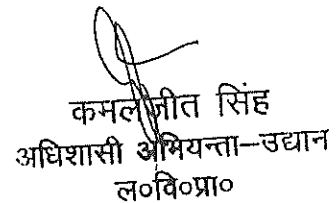 कमलजीत सिंह
अधिशासी अभियन्ता–उद्यान
ल०वि०प्रा०